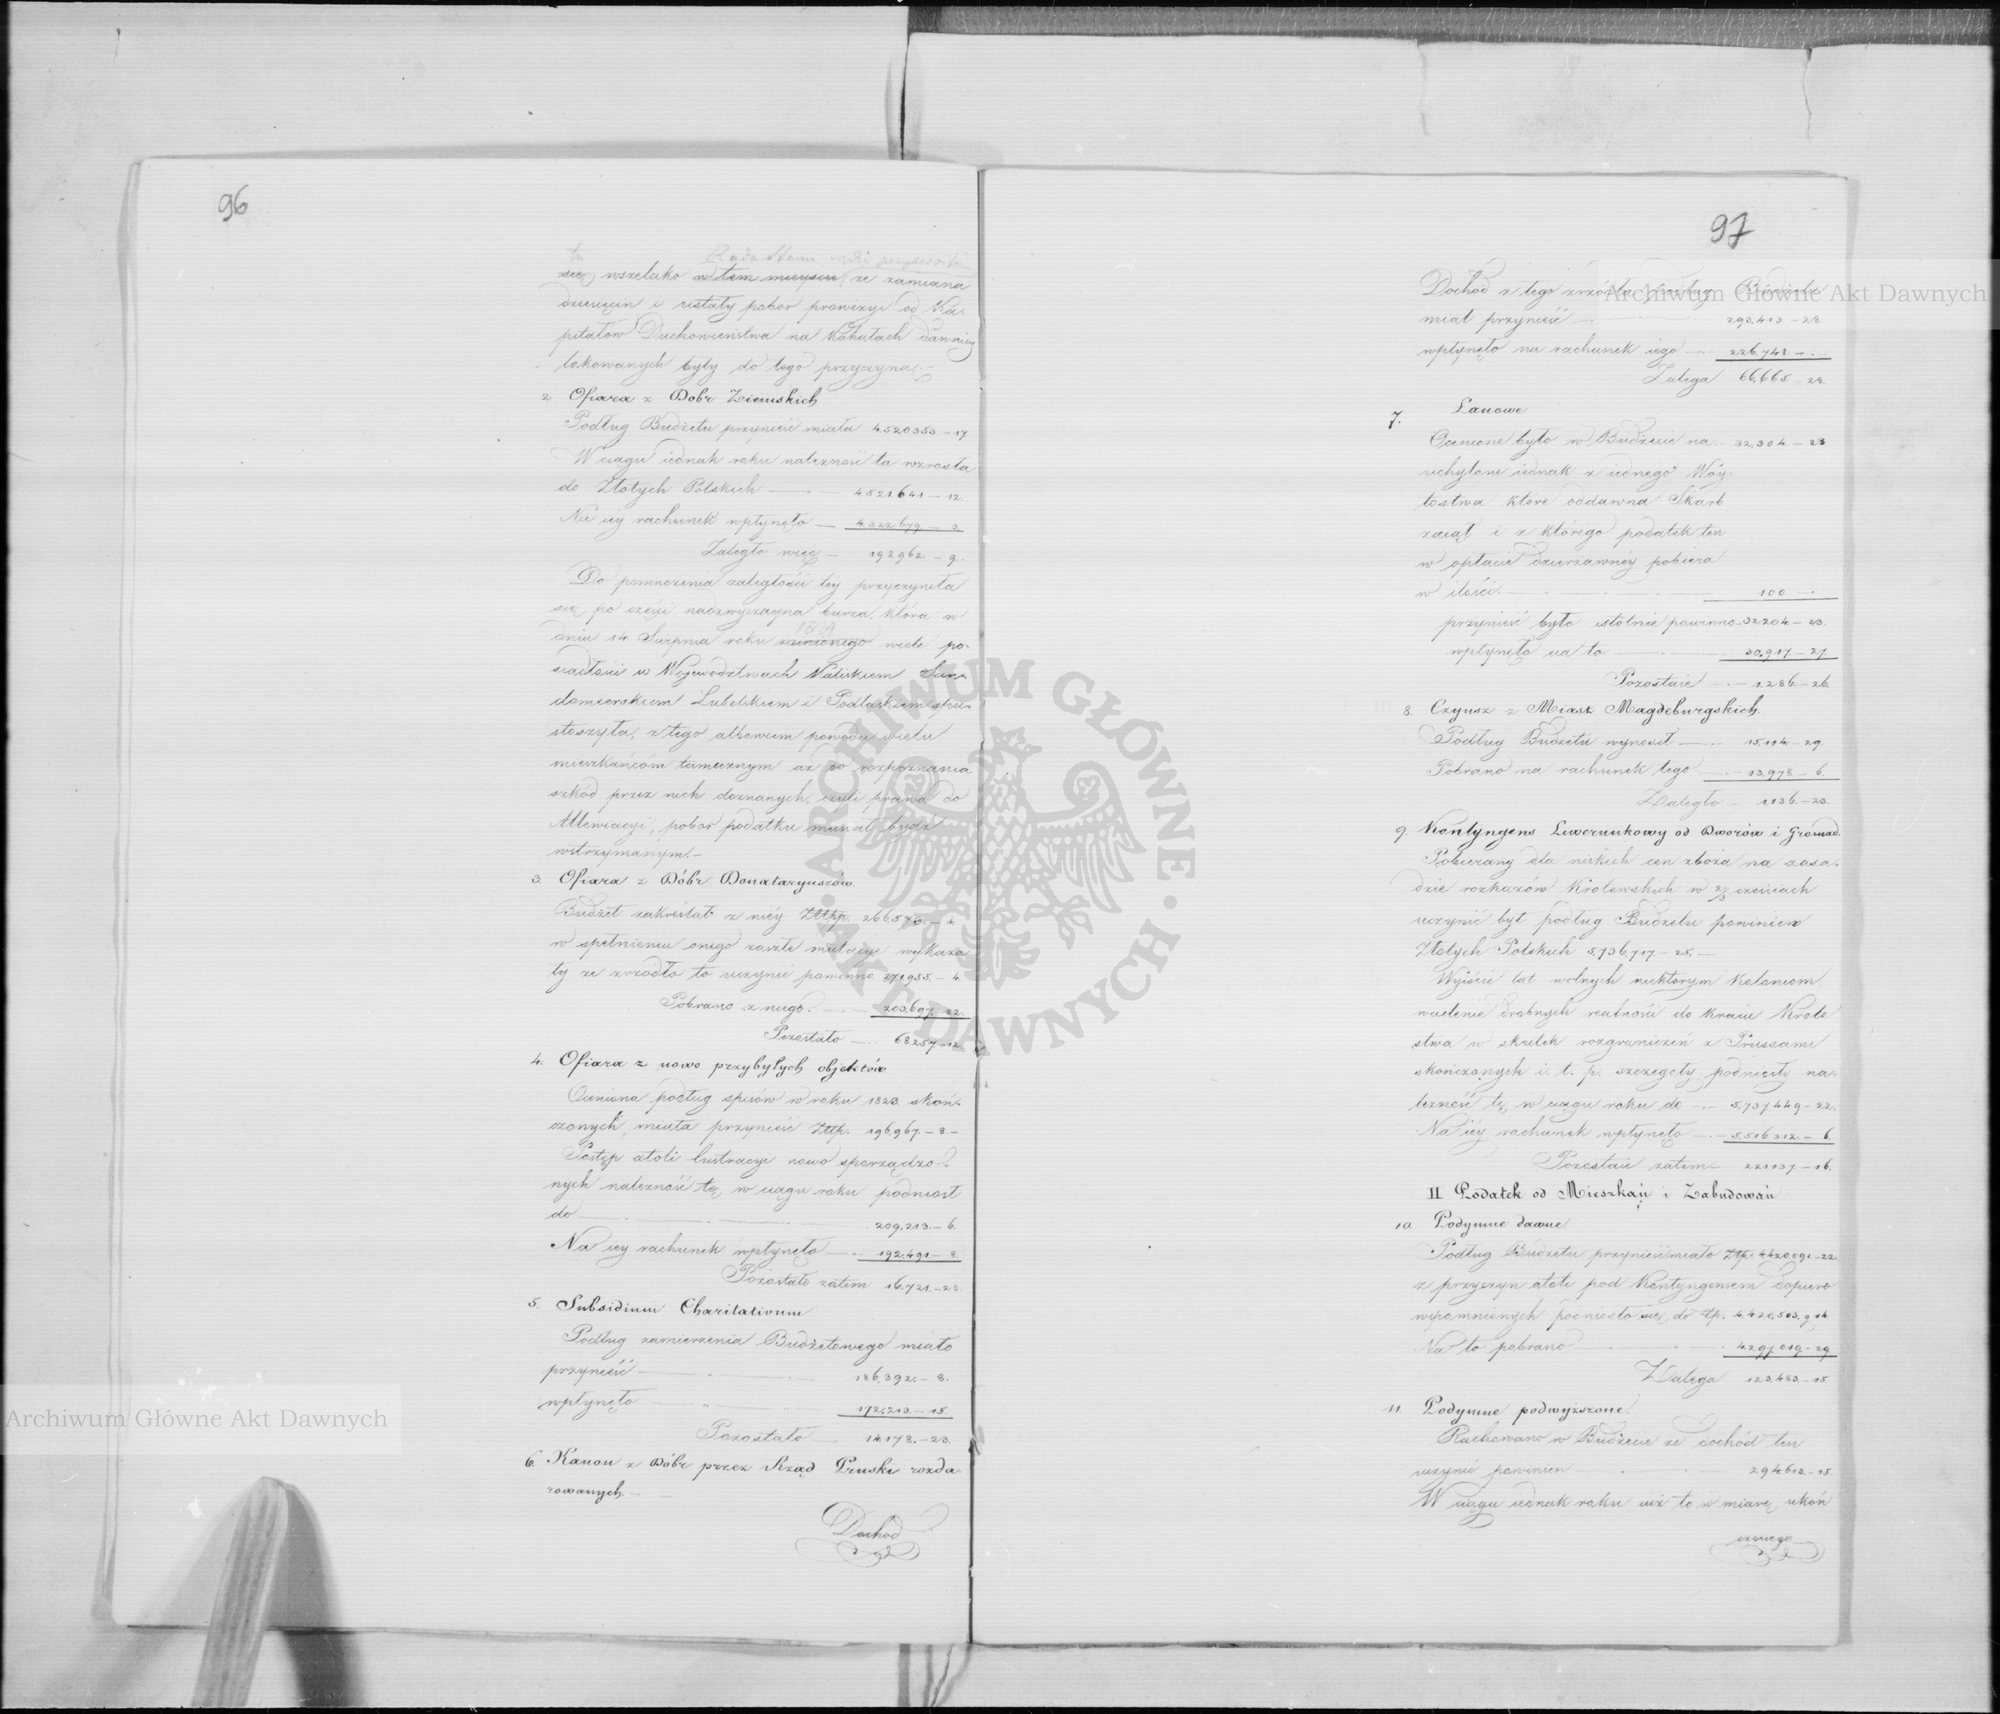 96
tu Rada Stanu
się wszelako w tem mieyscu że zamiana
dziesięcin i ustały pobor prowizyi od Ka-
pitałow Duchowieństwa na Kahałach dawniey
lokowanych były do tego przyczyną.-
2. Ofiara z Dobr Ziemskich
Podług Budżetu przynieść miała 4.520353.-17
W ciągu iednak roku należność ta wzrosła
do Złotych Polskich 4.521.641-12.
Na iey rachunek wpłynęło 4.322679-3.
Zaległo więc - 192962.-9.
Do pomnożenia zaległości téy przyczyniła
się po części nadzwyczayna burza, która w
dniu 14 Sierpnia roku minionego wiele po-
siadłości w Województwach Kaliskiem San-
domierskiem Lubelskiem i Podlaskiem spu-
stoszyła, z tego albowiem powodu wielu
mieszkańcom tamecznym aż do rozpoznania
szkód przez nich doznanych, czyli prawa do
Allewiacyi, pobor podatku musiał bydź
wstrzymanym.-
3. Ofiara z Dóbr Donataryuszów
Budżet zakreślał z niéy Złtp. 266.570.-4
w spełnieniu onego zaszłe mutacye wykaza-
ły że zrzódło to uczynić powinno 271955.-4.
Pobrano z niego. 203.697.-22.
Pozostało 68257.-12.
4. Ofiara z nowo przybyłych objektów
Oceniona podług spisów w roku 1823 skoń-
czonych, miała przynieść Złtp. 196.967.-8.-
Postęp atoli lustracyi nowo sporządzo-
nych należność tę w ciągu roku podniosł
do 209.213.-6.
Na iey rachunek wpłynęło 192.491-8.
Pozostało zatem 16.721.-28.
5. Subsidium Charitativum
Podług zamierzenia Budżetowego miało
przynieść 186.392.-8.
wpłynęło 172.213.-15.
Pozostało 14178.-23.
6. Kanon z Dóbr przez Rząd Pruski rozda-
rowanych.-
Dochod
97
Dochód z tego zrzódła podług Budżetu
miał przynieść 293.413.-28
wpłynęło na rachunek iego 226.748.-.
Zalega 66.665.-28.
7. Łanowe
Ocenione było w Budżecie na 32.304-23
uchylone iednak z iednego Wóy-
tostwa które oddawna Skarb
zaiął i z którego podatek ten
w opłacie dzierżawnéy pobiera
w ilości. 100.-.
przynieść było istotnie powinno 32204-23.
wpłynęło na to 30.917-27.
Pozostaie 1.286.-26.
8. Czynsz z Miast Magdeburgskich.
Podług Budżetu wynosił 15.114.-29.
Pobrano na rachunek tego 13.978-6.
Zaległo 1136.-23.
9. Kontyngens Liwerunkowy od Dworów i Gromad.
Pobierany dla niskich cen zboża na zasa-
dzie rozkazów Królewskich w 2/3 częściach
uczynić był podług Budżetu powinien
Złotych Polskich 5.736.717-25.-
Wyiście lat wolnych niektorym Koloniom,
wcielenie drobnych realności do kraiu Króle-
stwa w skutek rozgraniczeń z Prussami
skończonych i. t. p. szczegóły, podnieciły na-
leżność tę w ciągu roku do 5.737449-22.
Na iéy rachunek wpłynęło 5.516312.-6.
Pozostaie zatem 221137-16.
II Podatek od Mieszkań i Zabudowań
10. Podymne dawne.
Podług Budżetu przynieść miało Złtp. 4.420.091-22.
z przyczyn atoli pod Kontyngensem dopiero
wspomnionych podniosło się do Złp. 4.420,503. g 14
Na to pobrano 4.297.019-29
Zalega 123.483.-15.
11. Podymne podwyższone.
Rachowano w Budżecie że dochód ten
uczynić powinien 294.613.-15.
W ciągu iednak roku iuż to w miarę ukoń-
czonego
Archiwum Główne Akt Dawnych
Archiwum Główne Akt Dawnych
ARCHIWUM GŁÓWNE · AKT DAWNYCH ·